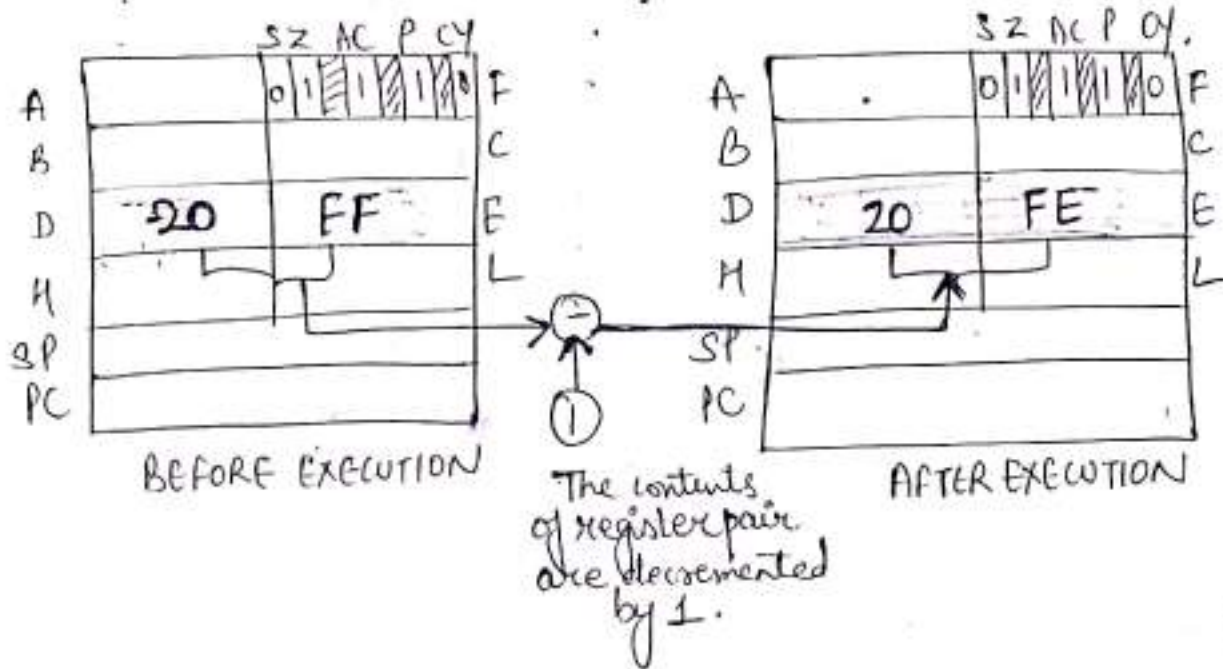 S Z AC P CY
A 0 1 1 1 0 F
B C
D 20 FF E
H L
SP
PC
BEFORE EXECUTION
-
1
The contents
of register pair
are decremented
by 1.
S Z AC P CY.
A 0 1 1 1 0 F
B C
D 20 FE E
H L
SP
PC
AFTER EXECUTION